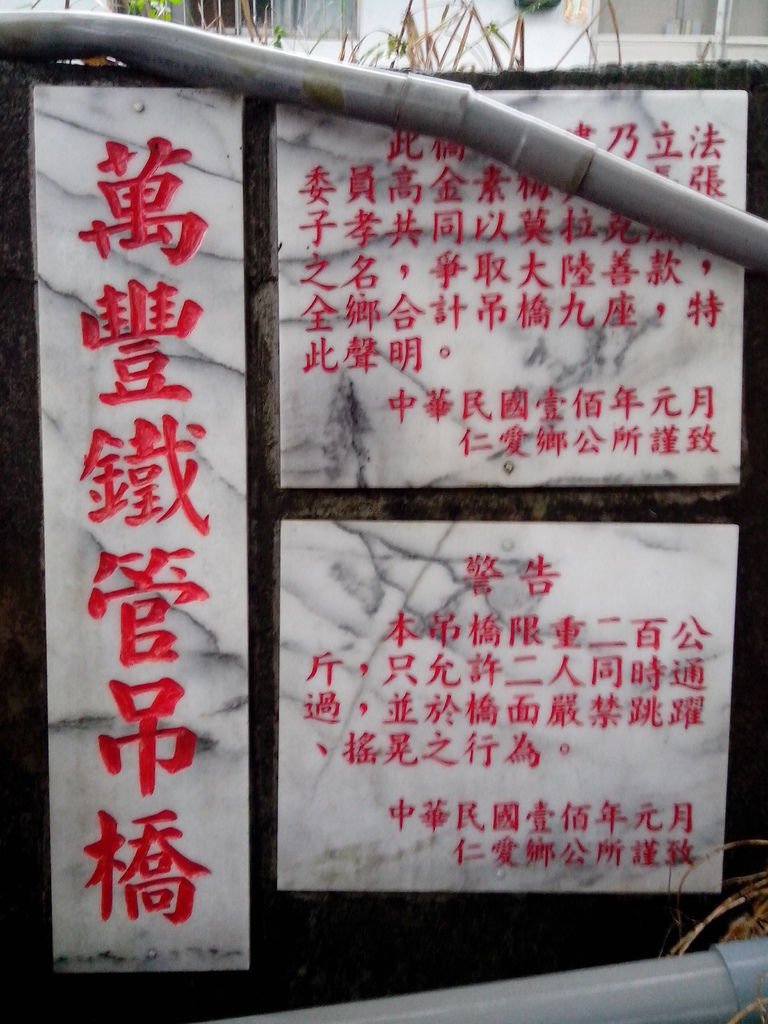 萬豐鐵管吊橋
此橋 乃立法
委員高金素梅 張
子孝共同以莫拉克
之名，爭取大陸善款，
全鄉合計吊橋九座，特
此聲明。
中華民國壹佰年元月
仁愛鄉公所謹致
警告
本吊橋限重二百公
斤，只允許二人同時通
過，並於橋面嚴禁跳躍
、搖晃之行為。
中華民國壹佰年元月
仁愛鄉公所謹致